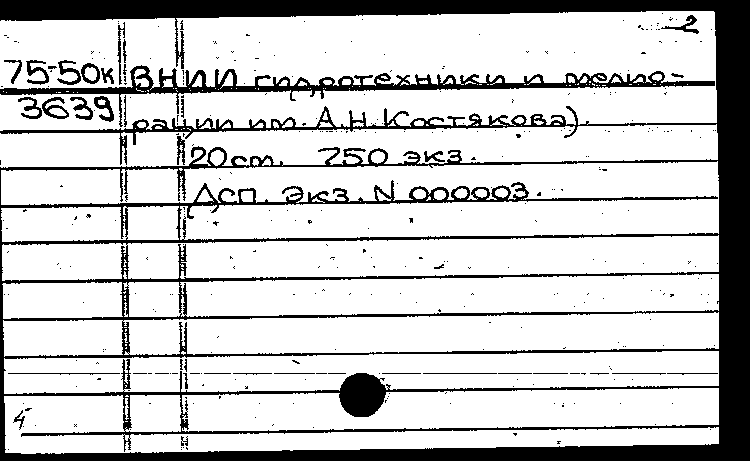 2
75-50к ВНИИ гидротехники и мелио-
3639 рации им. А.Н.Костякова).
20см. 750 экз.
Дсп. Экз. N 000003.
4